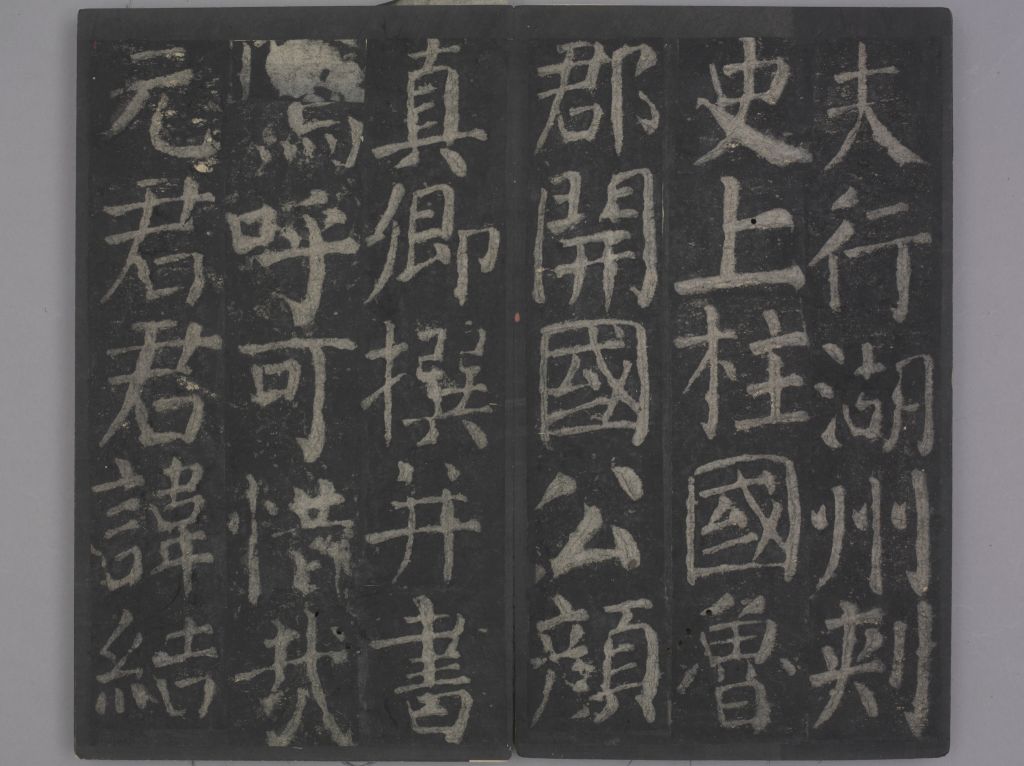 夫行湖州刺
史上柱國魯
郡開國公顏
真卿撰并書
嗚呼可惜哉
元君君諱結